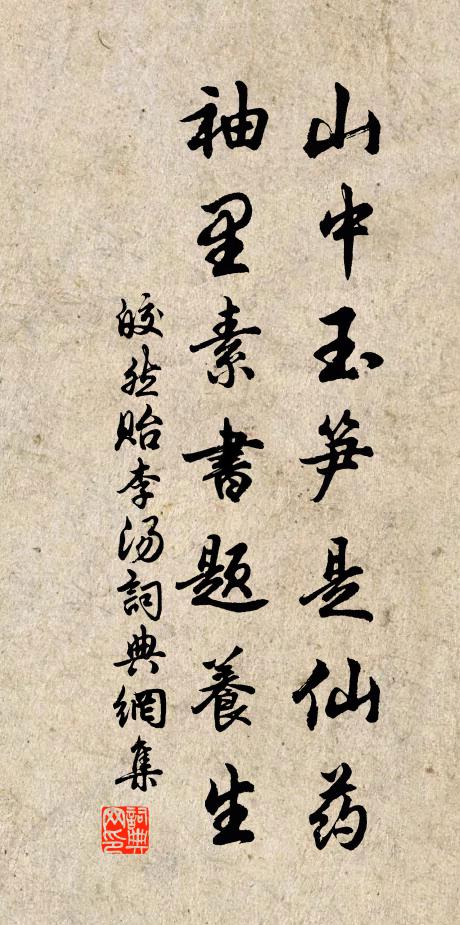 山中玉笋是仙药
袖里素书题養生
皎然贻李汤詞典網集
詞典
网印